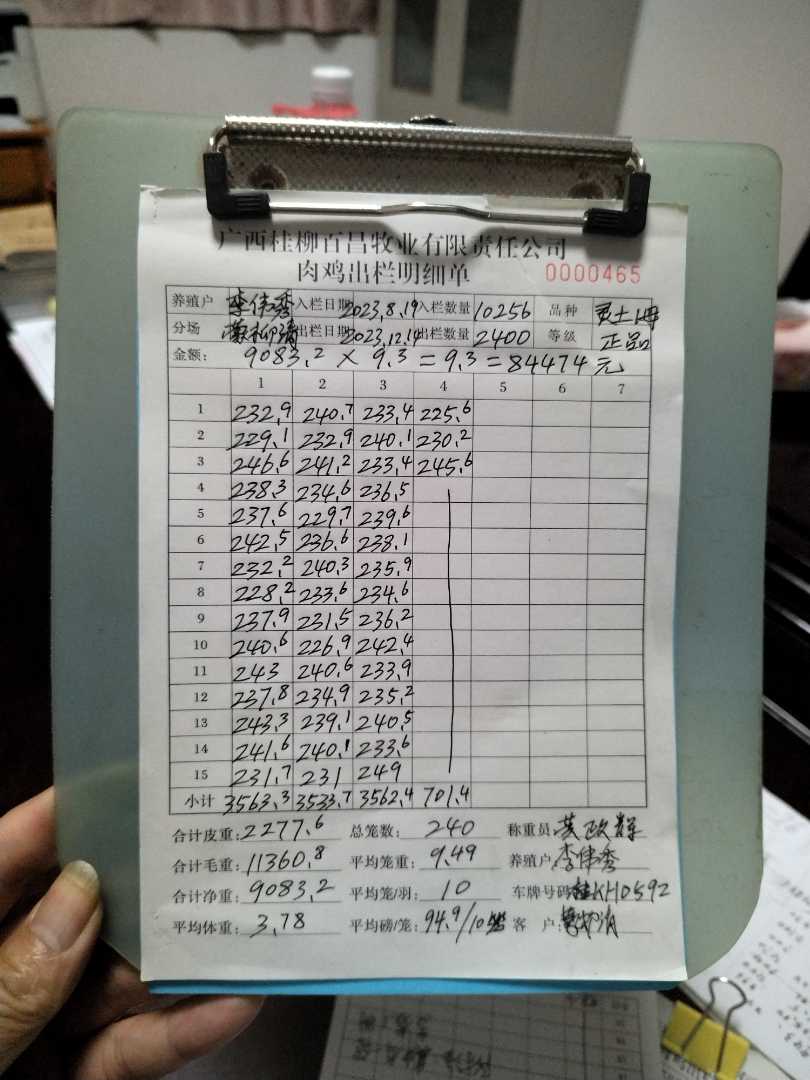 广西桂柳百昌牧业有限责任公司
肉鸡出栏明细单 0000465
养殖户 李伟秀 入栏日期 2023.8.19 入栏数量 10256 品种
分场 出栏日期 2023.12.14 出栏数量 2400 等级 正品
金额: 9083.2 × 9.3 = 9.3 = 84474 元
1 2 3 4 5 6 7
1 232.9 240.7 233.4 225.6
2 229.1 232.9 240.1 230.2
3 246.6 241.2 233.4 245.6
4 238.3 234.6 236.5
5 237.6 229.7 239.6
6 242.5 236.6 238.1
7 232.2 240.3 235.9
8 228.2 233.6 234.6
9 237.9 231.5 236.2
10 240.6 226.9 242.4
11 243 240.6 233.9
12 237.8 234.9 235.2
13 243.3 239.1 240.5
14 241.6 240.1 233.6
15 231.7 231 249
小计 3563.3 3533.7 3562.4 701.4
合计皮重: 2277.6 总笼数: 240 称重员: 黄政辉
合计毛重: 11360.8 平均笼重: 9.49 养殖户: 李伟秀
合计净重: 9083.2 平均笼/羽: 10 车牌号码: 桂KH0592
平均体重: 3.78 平均磅/笼: 94.9/10 客 户: